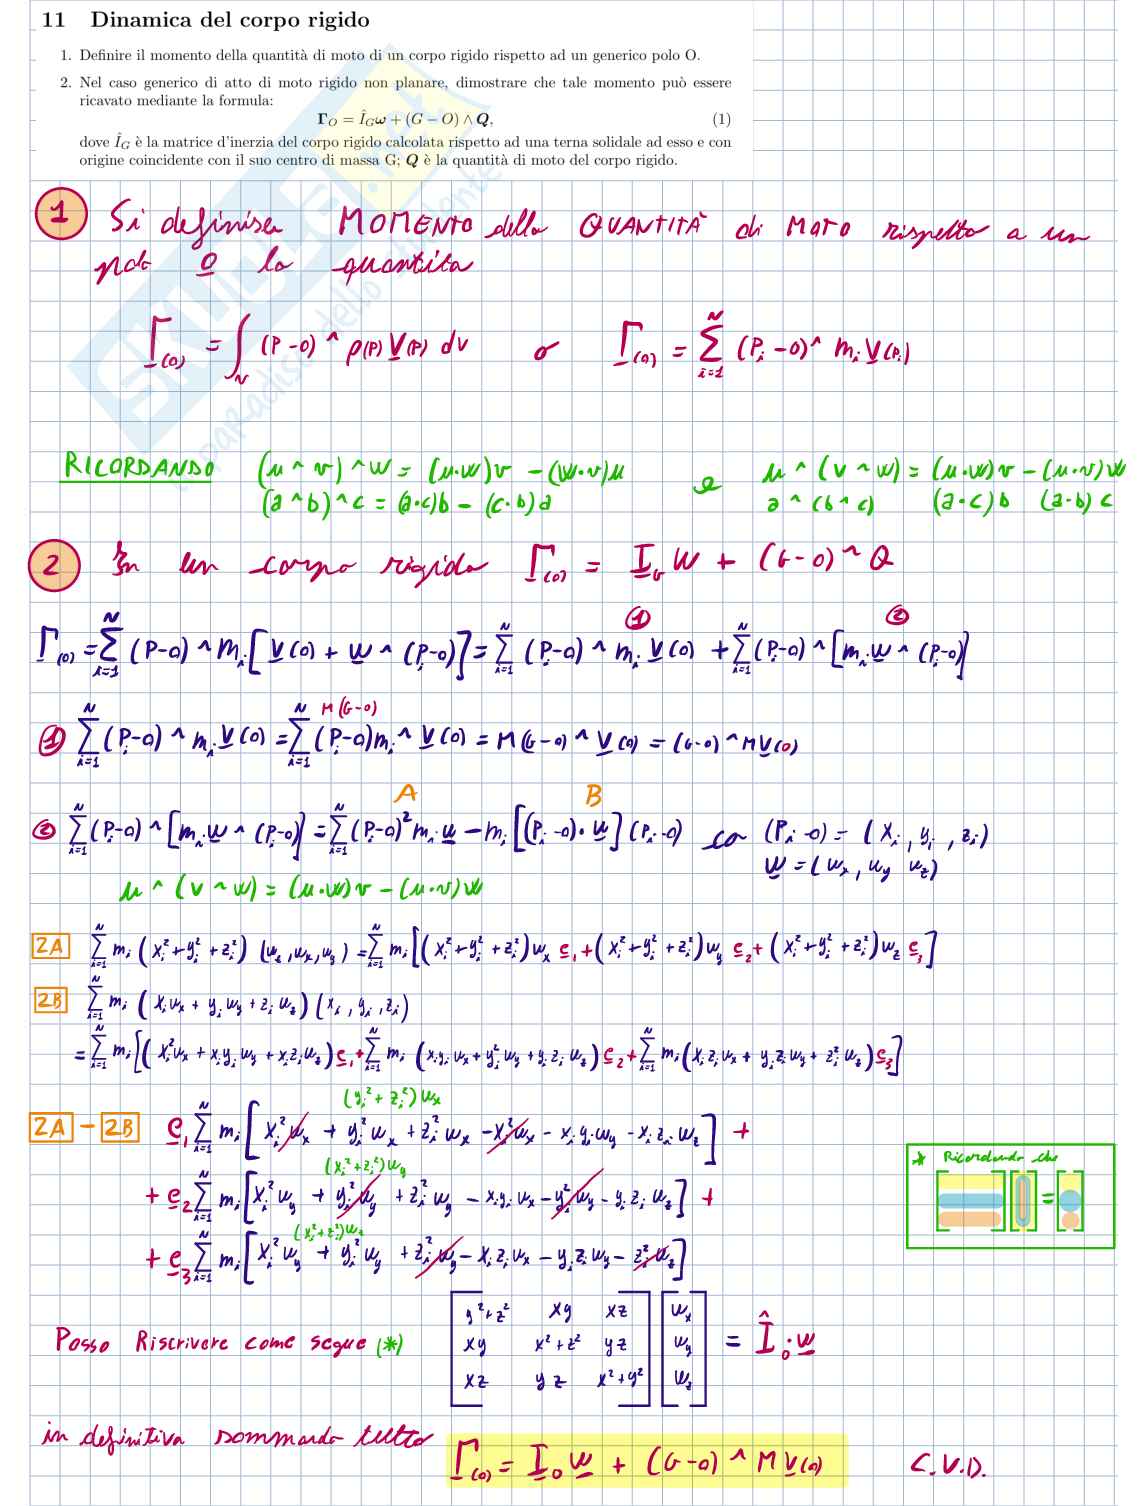 11 Dinamica del corpo rigido
1. Definire il momento della quantità di moto di un corpo rigido rispetto ad un generico polo O.
2. Nel caso generico di atto di moto rigido non planare, dimostrare che tale momento può essere
ricavato mediante la formula:
Γ_O = Î_G ω + (G − O) ∧ Q, (1)
dove Î_G è la matrice d'inerzia del corpo rigido calcolata rispetto ad una terna solidale ad esso e con
origine coincidente con il suo centro di massa G; Q è la quantità di moto del corpo rigido.
1 Si definisce MOMENTO della QUANTITÀ di MOTO rispetto a un
polo O la quantita
Γ(o) = ∫_V (P-O) ^ ρ(P) V(P) dV o Γ(o) = Σ_{i=1}^N (P_i - O) ^ m_i V(P_i)
RICORDANDO (u ^ v) ^ w = (u·w)v - (w·v)u e u ^ (v ^ w) = (u·w)v - (u·v)w
(a ^ b) ^ c = (a·c)b - (c·b)a a ^ (b ^ c) (a·c) b (a·b) c
2 In un corpo rigido Γ(o) = I_G W + (G-O) ^ Q
1 2
Γ(o) = Σ_{i=1}^N (P_i-O) ^ m_i [V(O) + w ^ (P_i-O)] = Σ_{i=1}^N (P_i-O) ^ m_i V(O) + Σ_{i=1}^N (P_i-O) ^ [m_i w ^ (P_i-O)]
M(G-O)
1 Σ_{i=1}^N (P_i-O) ^ m_i V(O) = Σ_{i=1}^N (P_i-O) m_i ^ V(O) = M(G-O) ^ V(O) = (G-O) ^ M V(O)
A B
2 Σ_{i=1}^N (P_i-O) ^ [m_i w ^ (P_i-O)] = Σ_{i=1}^N (P_i-O)² m_i w - m_i [(P_i-O)·w] (P_i-O) co (P_i-O) = (x_i, y_i, z_i)
w = (w_x, w_y w_z)
u ^ (v ^ w) = (u·w)v - (u·v)w
2A Σ_{i=1}^N m_i (x_i² + y_i² + z_i²) (w_z, w_x, w_y) = Σ_{i=1}^N m_i [(x_i² + y_i² + z_i²) w_x e_1 + (x_i² + y_i² + z_i²) w_y e_2 + (x_i² + y_i² + z_i²) w_z e_3]
2B Σ_{i=1}^N m_i (x_i w_x + y_i w_y + z_i w_z) (x_i, y_i, z_i)
= Σ_{i=1}^N m_i [(x_i² w_x + x_i y_i w_y + x_i z_i w_z) e_1 + Σ_{i=1}^N m_i (x_i y_i w_x + y_i² w_y + y_i z_i w_z) e_2 + Σ_{i=1}^N m_i (x_i z_i w_x + y_i z_i w_y + z_i² w_z) e_3]
(y_i² + z_i²) w_x
2A - 2B e_1 Σ_{i=1}^N m_i [x_i² w_x + y_i² w_x + z_i² w_x - x_i² w_x - x_i y_i w_y - x_i z_i w_z] +
(x_i² + z_i²) w_y
+ e_2 Σ_{i=1}^N m_i [x_i² w_y + y_i² w_y + z_i² w_y - x_i y_i w_x - y_i² w_y - y_i z_i w_z] +
(x_i² + z_i²) w_z
+ e_3 Σ_{i=1}^N m_i [x_i² w_y + y_i² w_y + z_i² w_y - x_i z_i w_x - y_i z_i w_y - z_i² w_z]
* Ricordando che
=
Posso Riscrivere come segue (*) [y²+z² xy xz] [w_x]
[xy x²+z² yz] [w_y] = Î_o · w
[xz yz x²+y²] [w_z]
in definitiva sommando tutto Γ(o) = I_o w + (G-O) ^ M V(O) C.V.D.
SKUOLA.net
paradiso dello studente